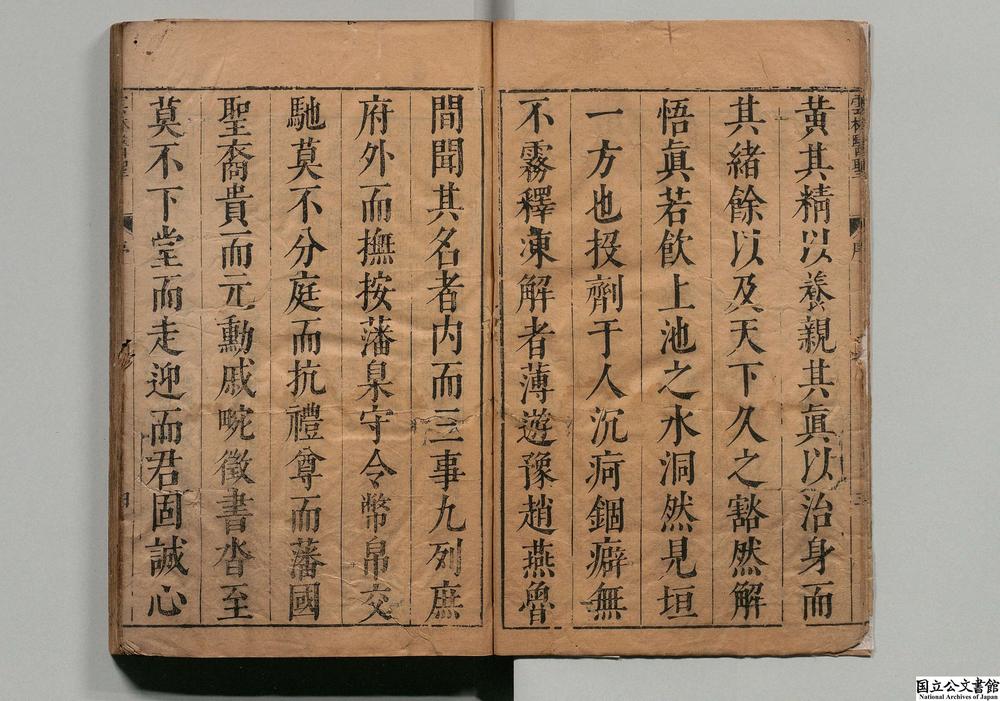 黃其精以養親其眞以治身而
其緒餘以及天下久之豁然解
悟眞若飮上池之水洞然見垣
一方也投劑于人沉疴錮癖無
不霧釋凍解者薄遊豫趙燕魯
序
三
間聞其名者内而三事九列庶
府外而撫按藩臬守令幣帛交
馳莫不分庭而抗禮尊而藩國
聖裔貴而元勳戚畹徵書沓至
莫不下堂而走迎而君固誠心
四
国立公文書館
National Archives of Japan